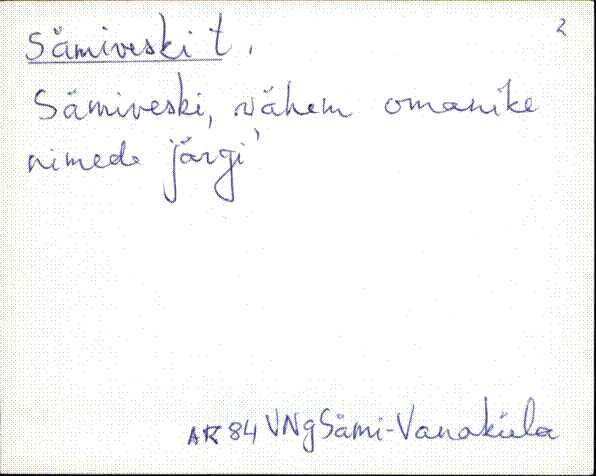 Sämiveski t. 2
Sämiveski, vähem omanike
nimede järgi'
AK 84 VNg Sämi-Vanaküla